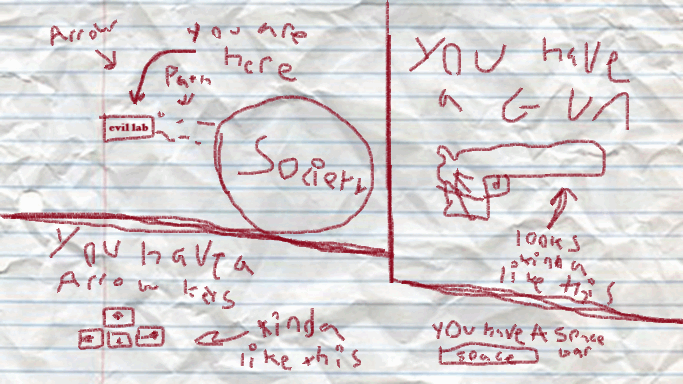 Arrow
you are
here
Path
evil lab
Society
you have
a GUN
looks
kinda
like this
You have a
Arrow keys
kinda
like this
you have A space
bar
space